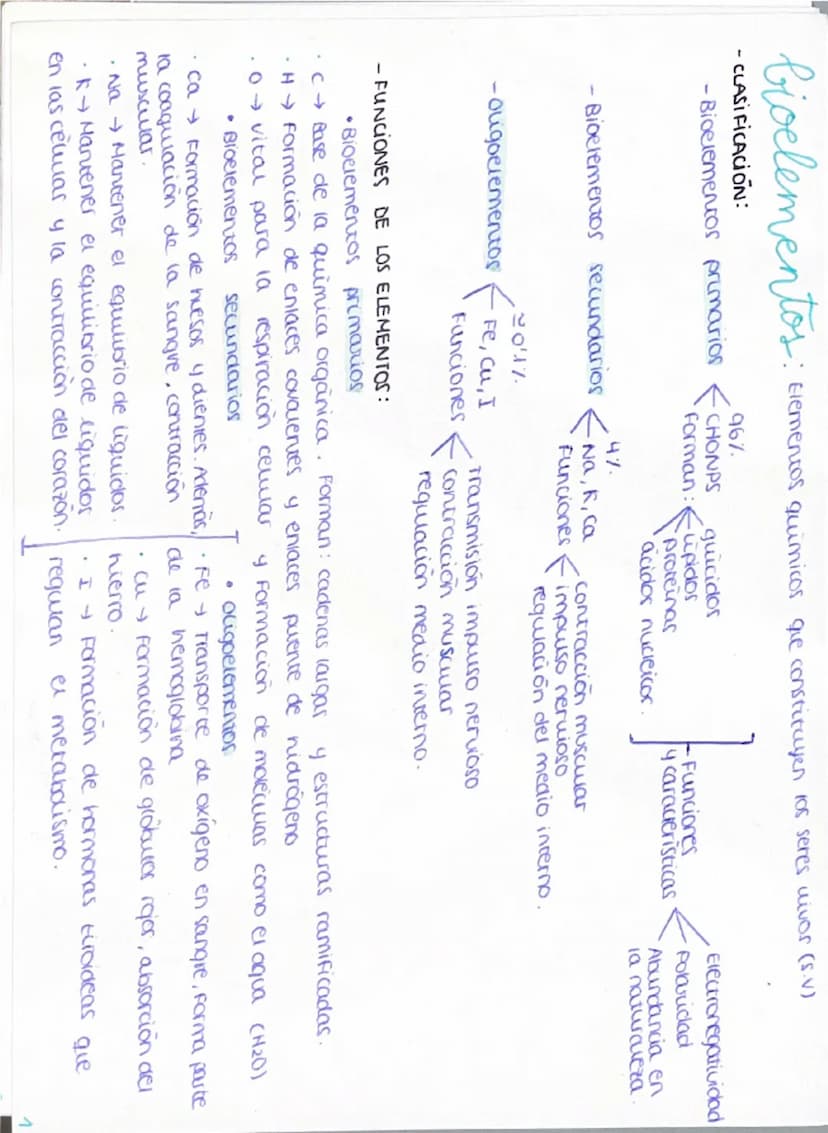 bioelementos: Elementos químicos que constituyen los seres vivos (S.V)
- CLASIFICACIÓN:
- Bioelementos primarios
96%
CHONPS
Forman:
glúcidos
lípidos
proteínas
ácidos nucleicos.
- Funciones
y características
Electronegatividad
Polaridad
Abundancia en
la naturaleza.
- Bioelementos secundarios
4%
Na, K, Ca
Funciones
contracción muscular
impulso nervioso
regulación del medio interno.
- Oligoelementos
≃0'1%
Fe, Cu, I
Funciones
transmisión impulso nervioso
contracción muscular
regulación medio interno.
- FUNCIONES DE LOS ELEMENTOS:
• Bioelementos primarios
· C → Base de la química orgánica. Forman: cadenas largas y estructuras ramificadas.
· H → Formación de enlaces covalentes y enlaces puente de hidrógeno
· O → Vital para la respiración celular y formación de moléculas como el agua (H2O)
• Bioelementos secundarios
· Ca → Formación de huesos y dientes. Además,
la coagulación de la sangre, contracción
muscular.
· Na → Mantener el equilibrio de líquidos.
· K → Mantener el equilibrio de líquidos
en las células y la contracción del corazón.
• Oligoelementos
· Fe → Transporte de oxígeno en sangre, forma parte
de la hemoglobina
· Cu → Formación de glóbulos rojos, absorción del
hierro.
· I → Formación de hormonas tiroideas que
regulan el metabolismo.
1